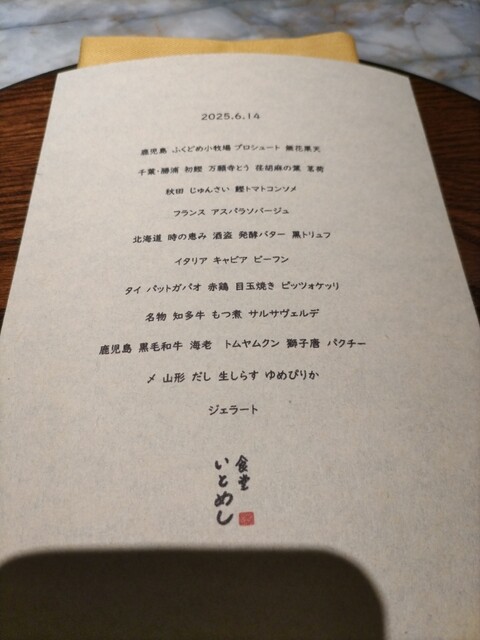 2025.6.14
鹿児島 ふくどめ小牧場 プロシュート 無花果天
千葉・勝浦 初鰹 万願寺とう 荏胡麻の葉 茗荷
秋田 じゅんさい 鰹トマトコンソメ
フランス アスパラソバージュ
北海道 時の恵み 酒盗 発酵バター 黒トリュフ
イタリア キャビア ビーフン
タイ パットガパオ 赤鶏 目玉焼き ピッツォケッリ
名物 知多牛 もつ煮 サルサヴェルデ
鹿児島 黒毛和牛 海老 トムヤムクン 獅子唐 パクチー
〆 山形 だし 生しらす ゆめぴりか
ジェラート
食堂
いとめし